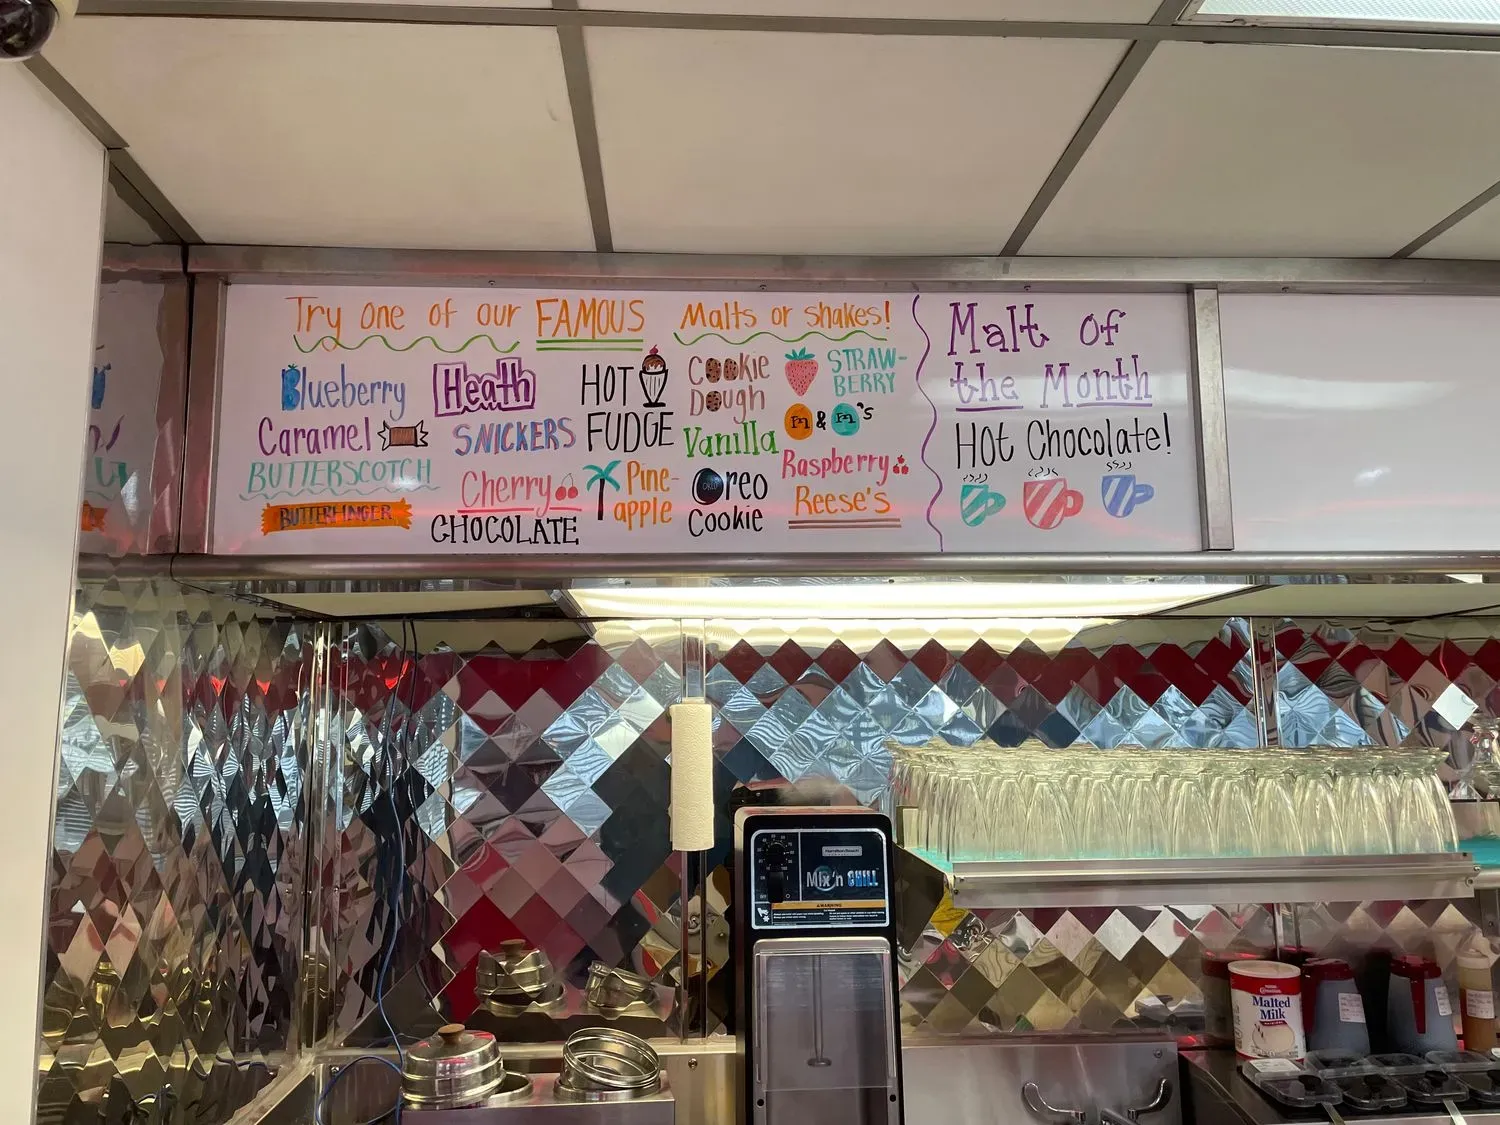 Try one of our FAMOUS Malts or shakes!
Blueberry
Caramel
BUTTERSCOTCH
BUTTERFINGER
Heath
SNICKERS
Cherry
CHOCOLATE
HOT
FUDGE
Pine-
apple
Cookie
Dough
Vanilla
Oreo
Cookie
STRAW-
BERRY
m & m's
Raspberry
Reese's
Malt of
the Month
Hot Chocolate!
Hamilton Beach
Mix'n CHILL
WARNING
Malted
Milk